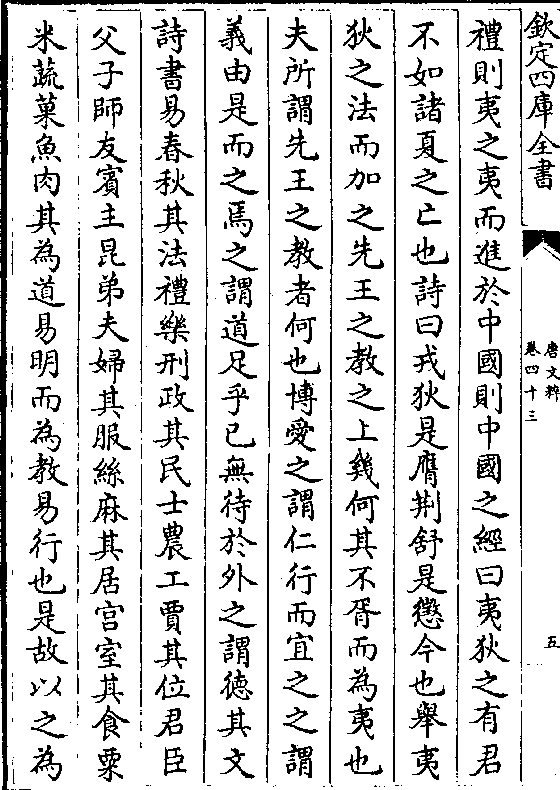 欽定四庫全書
唐文粹
卷四十三
五
禮則夷之夷而進於中國則中國之經曰夷狄之有君
不如諸夏之亡也詩曰戎狄是膺荆舒是懲今也舉夷
狄之法而加之先王之教之上幾何其不胥而為夷也
夫所謂先王之教者何也博愛之謂仁行而宜之之謂
義由是而之焉之謂道足乎已無待於外之謂德其文
詩書易春秋其法禮樂刑政其民士農工賈其位君臣
父子師友賓主昆弟夫婦其服絲麻其居宫室其食粟
米蔬菓魚肉其為道易明而為教易行也是故以之為